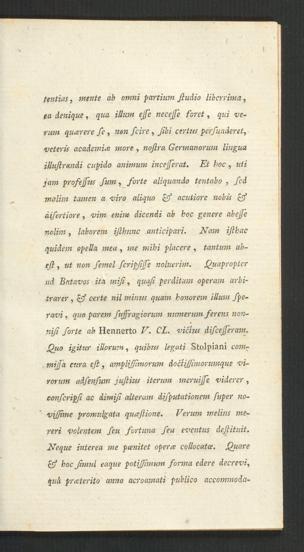 tentias, mente ab omni partium ſtudio liberrima,
ea denique, qua illum eſſe neceſſe foret, qui ve-
rum quaerere ſe, non ſcire, ſibi certus perſuaderet,
veteris academiæ more, noſtra Germanorum lingua
illuſtrandi cupido animum inceſſerat. Et hoc, uti
jam profeſſus ſum, forte aliquando tentabo, ſed
malim tamen a viro aliquo & acutiore nobis &
diſertiore, vim enim dicendi ab hoc genere abeſſe
nolim, laborem iſthunc anticipari. Nam iſthæc
quidem opella mea, me mihi placere, tantum ab-
eſt, ut non ſemel ſcripſiſſe noluerim. Quapropter
ad Batavos ita miſi, quaſi perditam operam arbi-
trarer, & certe nil minus quam honorem illum ſpe-
ravi, quo parem ſuffragiorum numerum ferens non-
niſi ſorte ab Hennerto V. CL. victus diſceſſeram.
Quo igitur illorum, quibus legati Stolpiani com-
miſſa cura eſt, ampliſſimorum doctiſſimorumque vi-
rorum adſenſum juſtius iterum meruiſſe viderer,
conſcripſi ac dimiſi alteram diſputationem ſuper no-
viſſime promulgata quæſtione. Verum melius me-
reri volentem ſeu fortuna ſeu eventus deſtituit.
Neque interea me pœnitet operæ collocatæ. Quare
& hoc ſimul eaque potiſſimum forma edere decrevi,
quâ præterito anno acroamati publico accommoda-